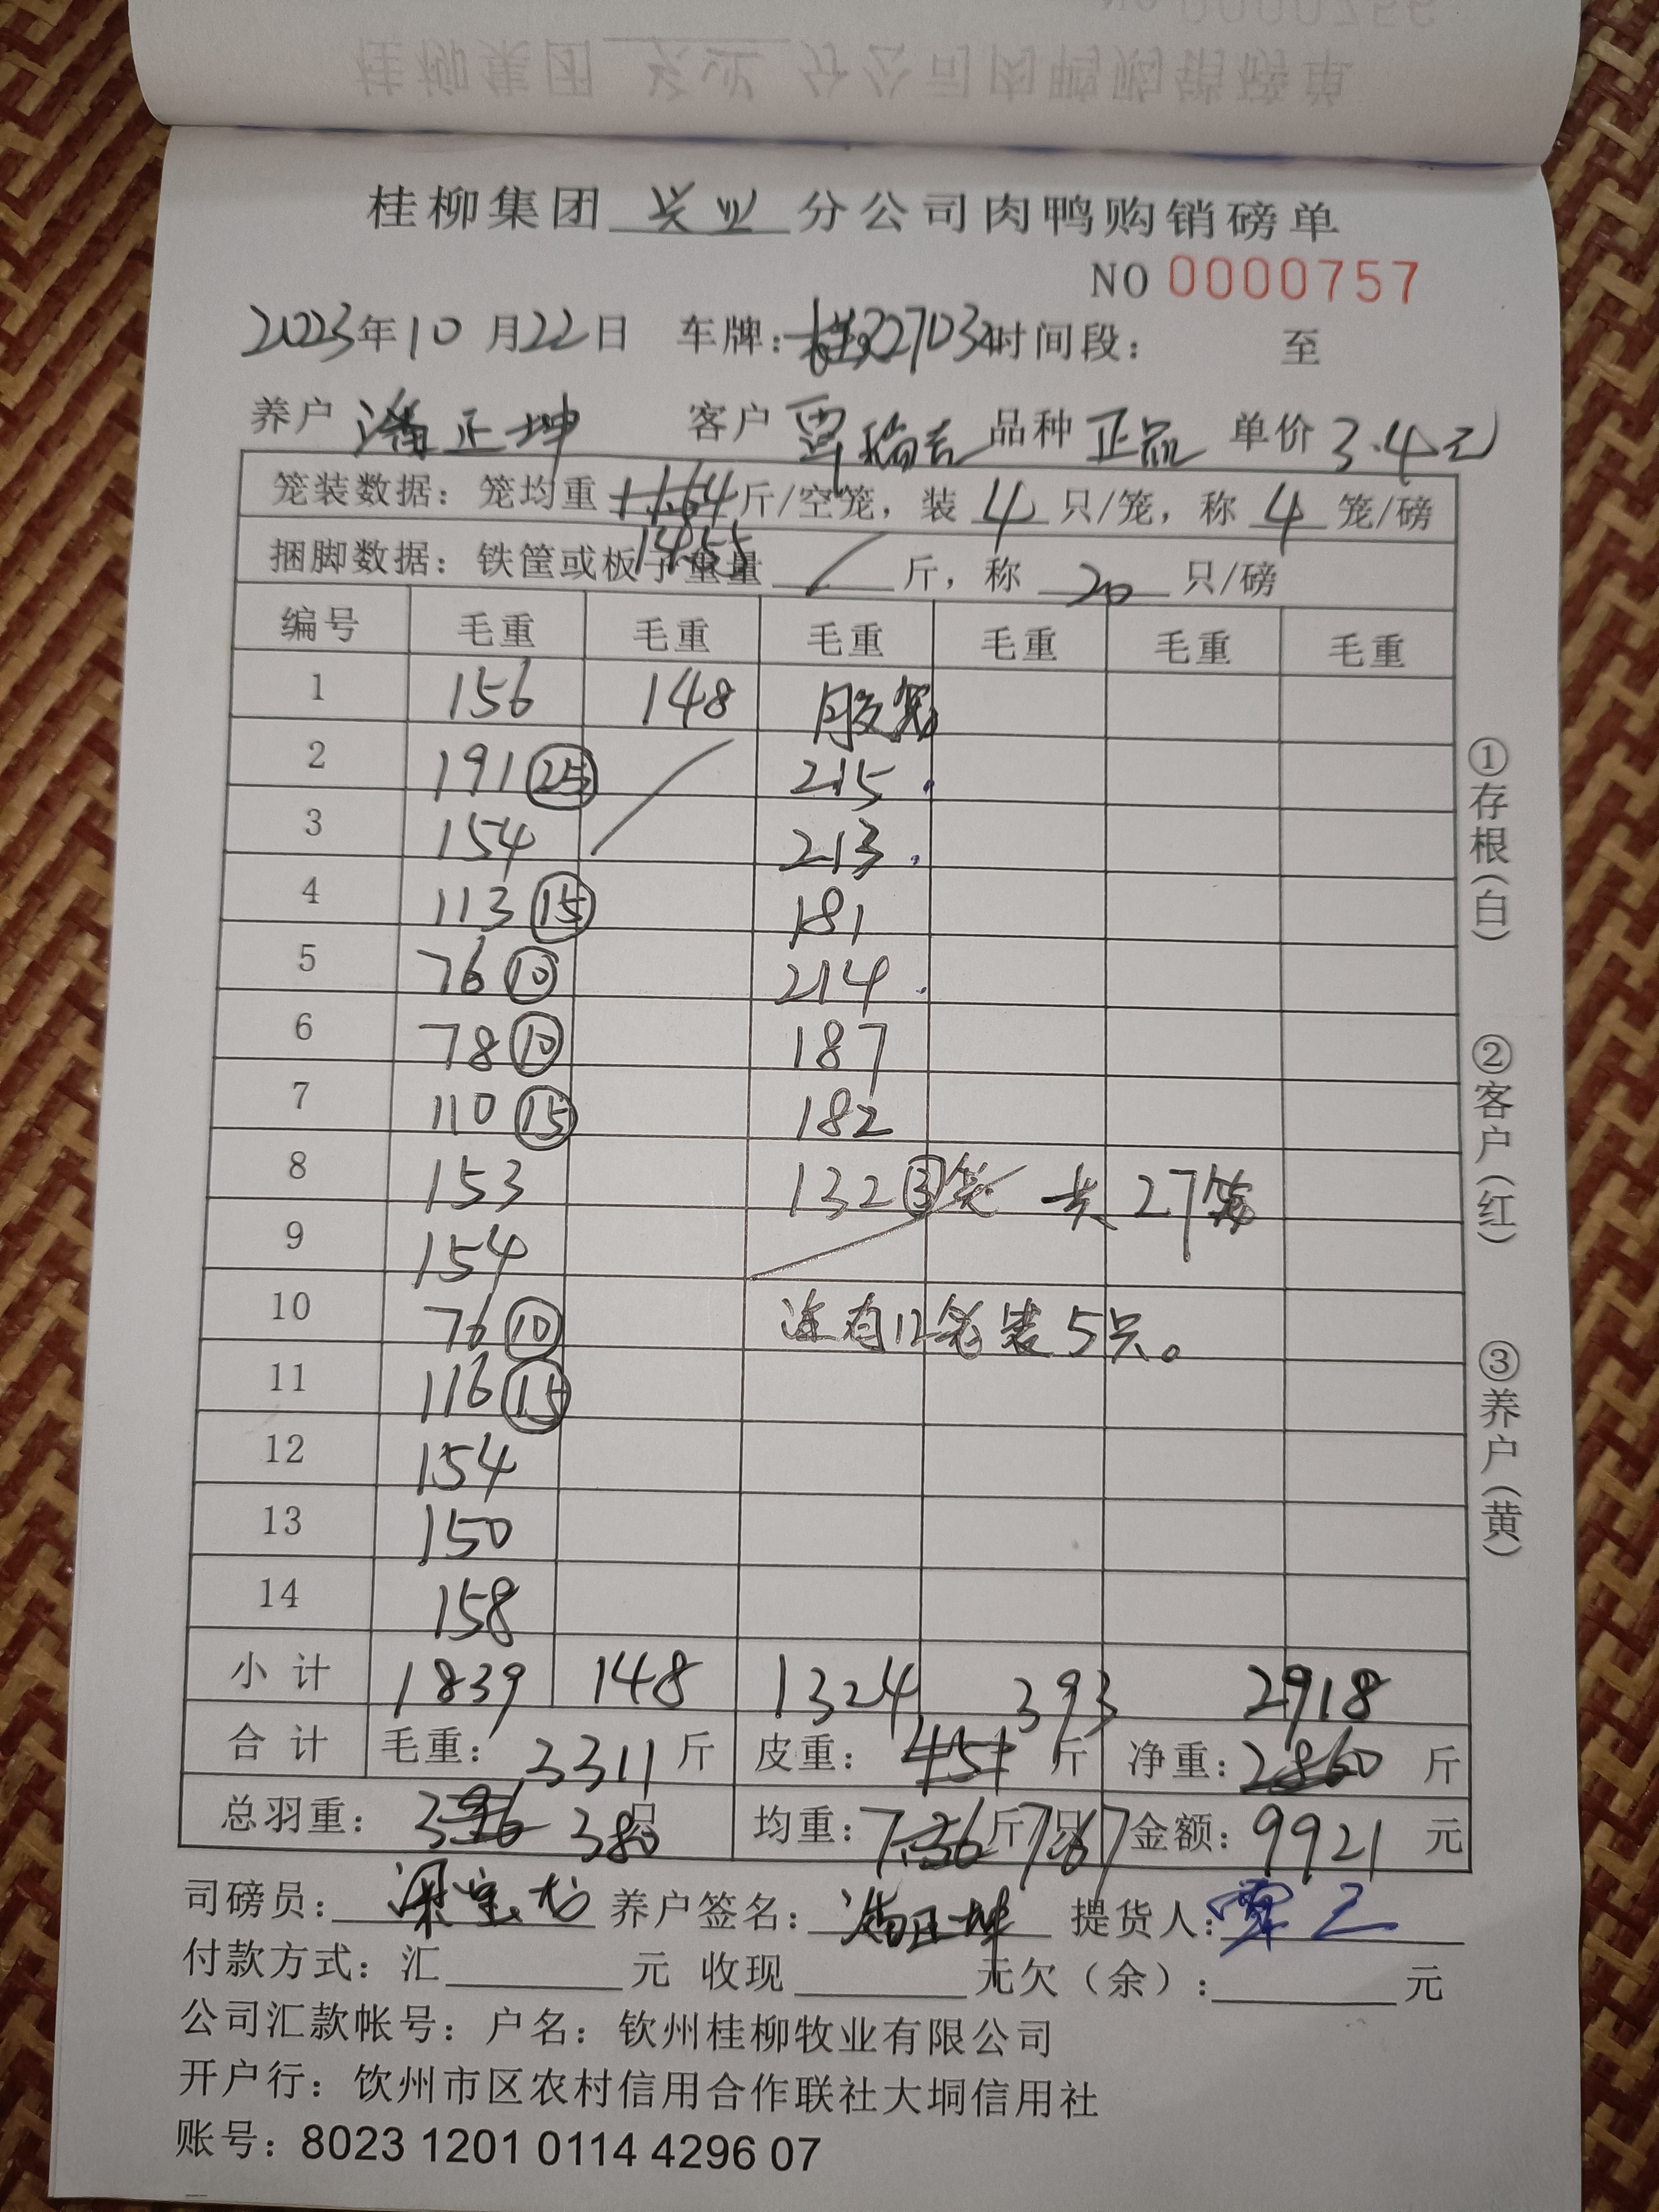 桂柳集团 兴业 分公司肉鸭购销磅单
NO 0000757
2023年10月22日 车牌: 时间段: 至
养户 潘正坤 客户 覃瑞吉 品种 正品 单价 3.4元
笼装数据: 笼均重 11.64 斤/空笼, 装 4 只/笼, 称 4 笼/磅
14.55
捆脚数据: 铁筐或板子重量 / 斤, 称 20 只/磅
编号 毛重 毛重 毛重 毛重 毛重 毛重
1 156 148 胶笼
2 191 25 215
3 154 213
4 113 15 181
5 76 10 214
6 78 10 187
7 110 15 182
8 153 132 3笼 共27笼
9 154
10 76 10 还有12笼装5只。
11 116 15
12 154
13 150
14 158
小计 1839 148 1324 393 2918
合计 毛重: 3311 斤 皮重: 451 斤 净重: 2860 斤
总羽重: 396 380 只 均重: 7.36 斤/只 7.67 金额: 9921 元
司磅员: 梁宝龙 养户签名: 潘正坤 提货人: 覃
付款方式: 汇 元 收现 元欠(余): 元
公司汇款帐号: 户名: 钦州桂柳牧业有限公司
开户行: 钦州市区农村信用合作联社大垌信用社
账号: 8023 1201 0114 4296 07
①存根(白)
②客户(红)
③养户(黄)